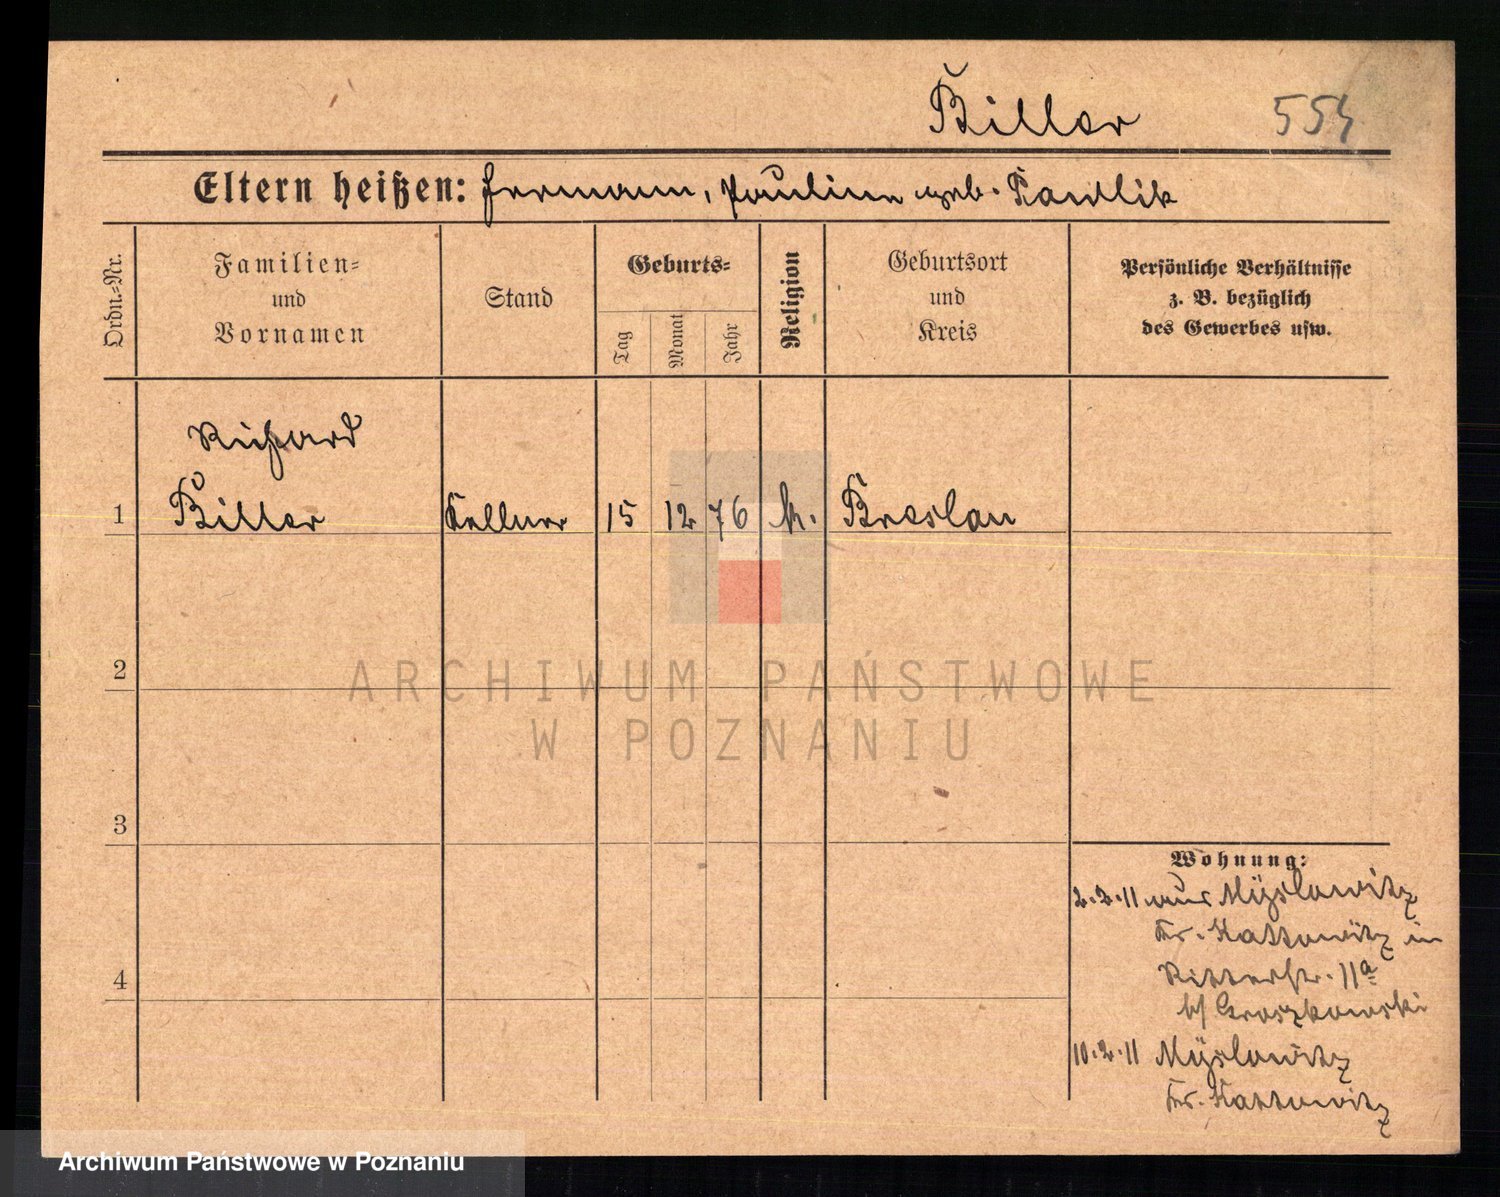 Biller 554
Eltern heißen: Hermann, Pauline geb. Pawlik
Ordn.-Nr.
Familien-
und
Vornamen
Stand
Geburts-
Tag
Monat
Jahr
Religion
Geburtsort
und
Kreis
Persönliche Verhältnisse
z. B. bezüglich
des Gewerbes usw.
Richard
1 Biller Kellner 15 12 76 k. Breslau
2
3
4
Wohnung:
2.2.11 aus Myslowitz
Kr. Kattowitz in
Ritterstr. 11a
b/ Groszkowski
10.2.11 Myslowitz
Kr. Kattowitz
ARCHIWUM PAŃSTWOWE
W POZNANIU
Archiwum Państwowe w Poznaniu